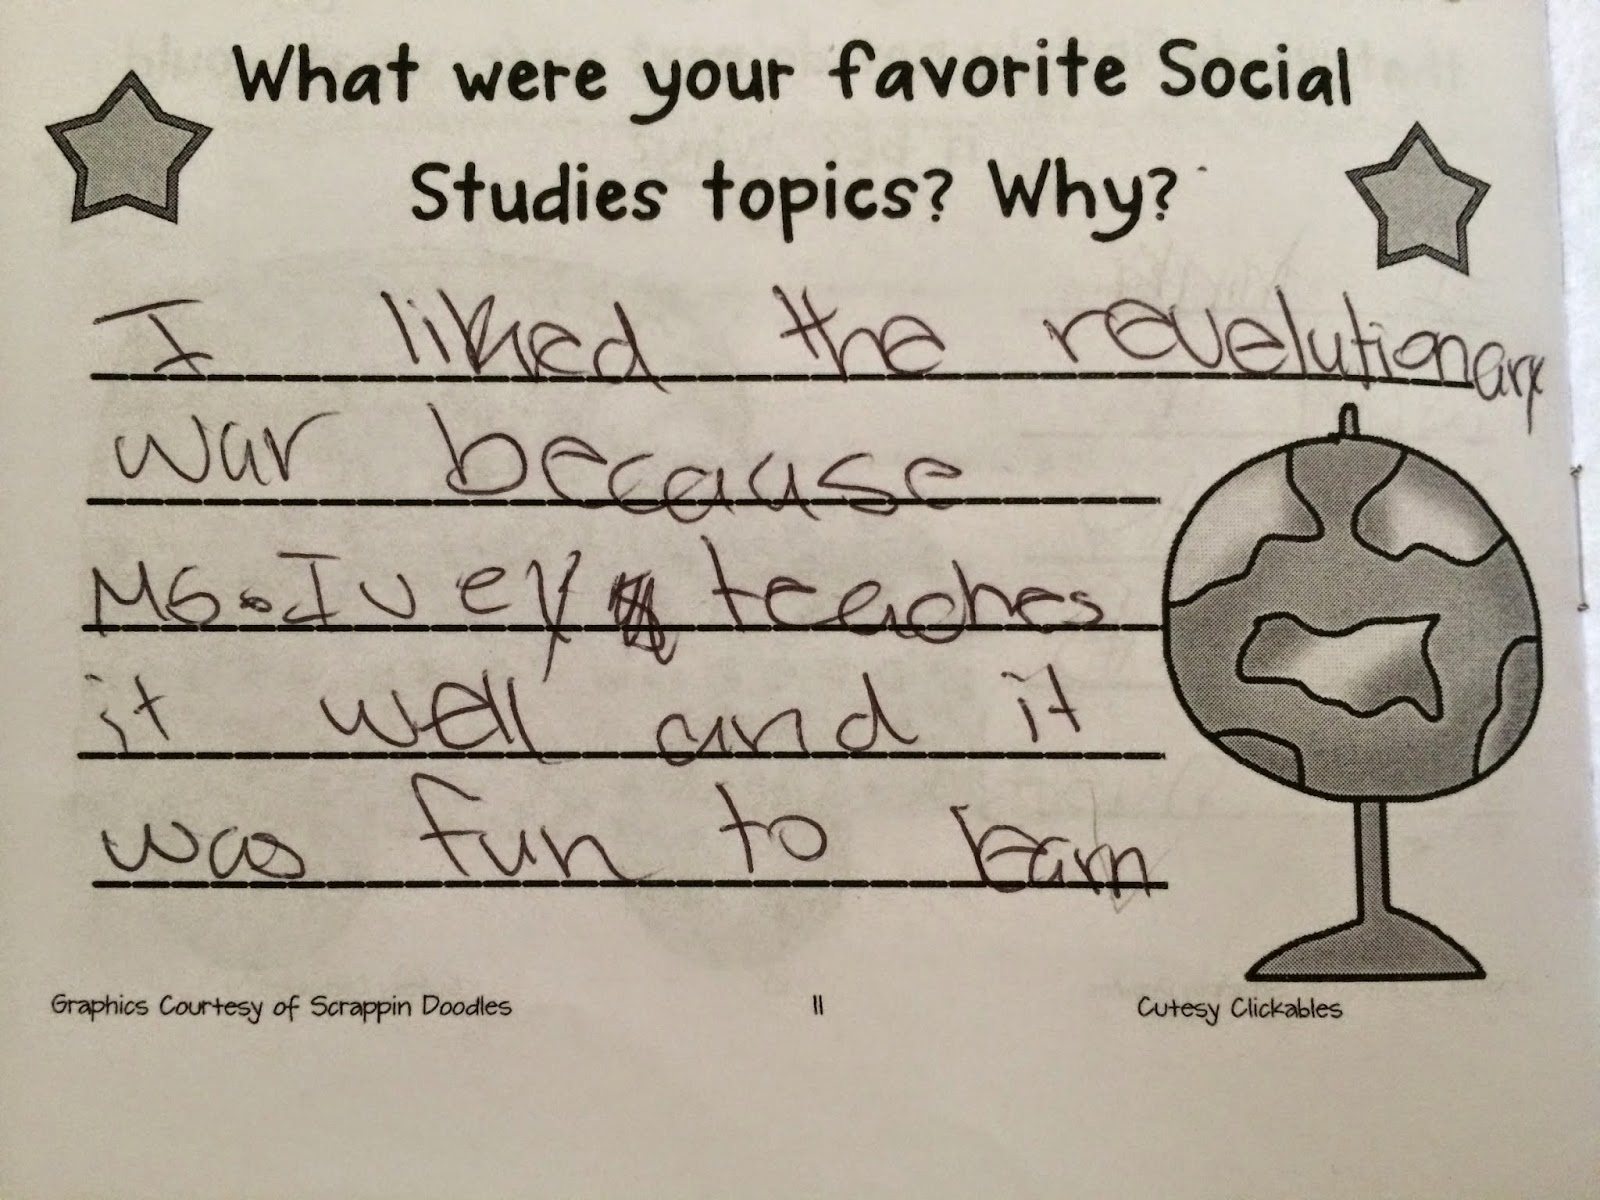 What were your favorite Social
Studies topics? Why?
I liked the revelutionary
war because
Ms. Ivey teaches
it well and it
was fun to learn
Graphics Courtesy of Scrappin Doodles 11 Cutesy Clickables